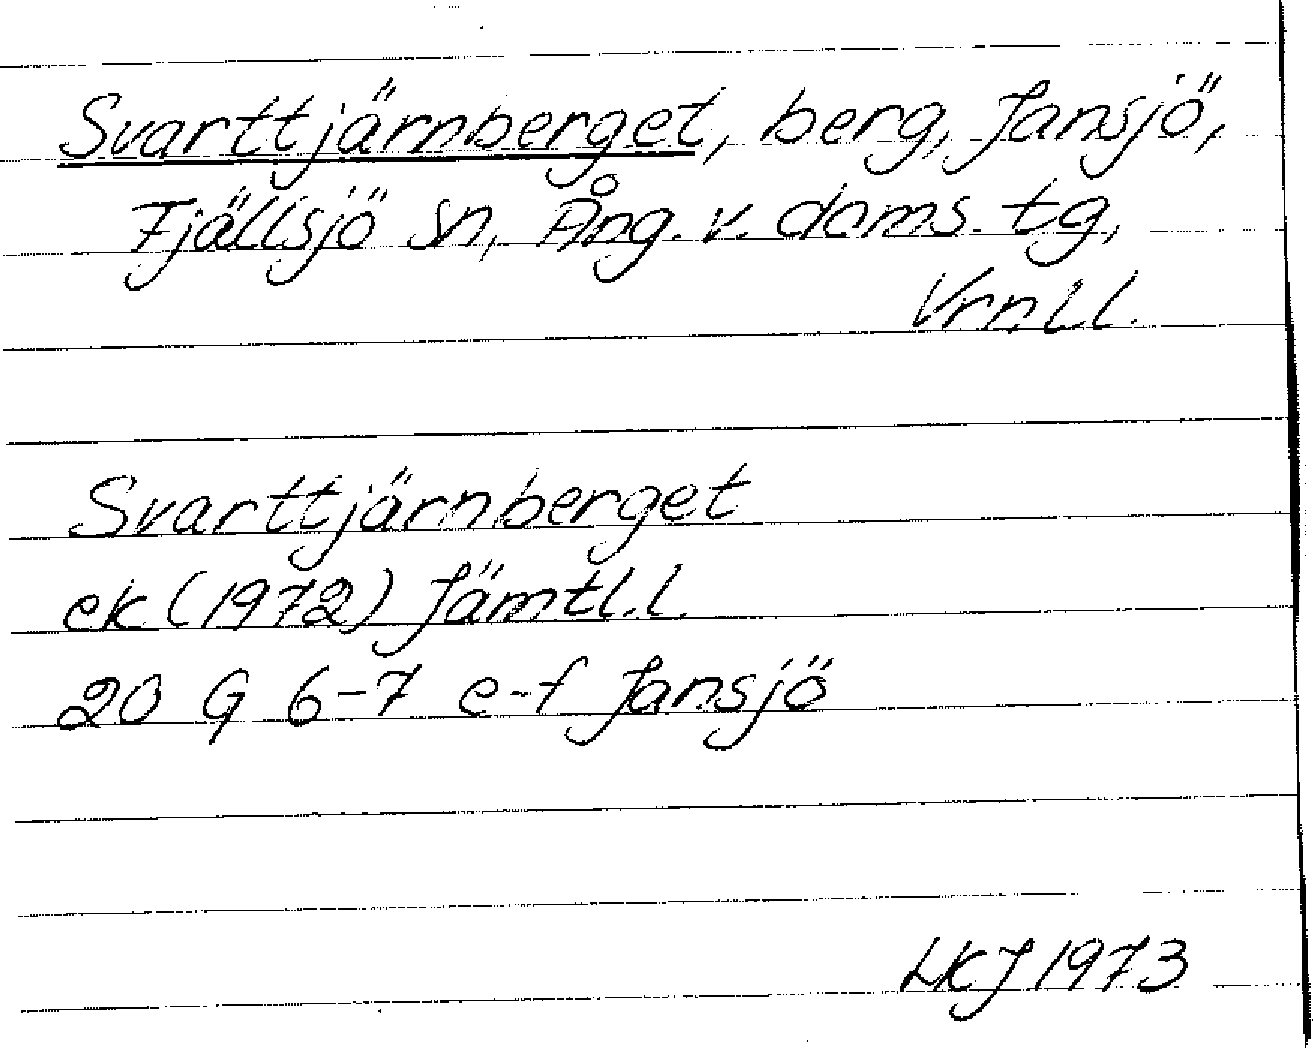 Svarttjärnberget, berg, Jansjö,
Fjällsjö sn, Ång. v. doms. tg,
Vrnl.l.
Svarttjärnberget
ek (1972) Jämtl.l.
20 G 6-7 e-f Jansjö
LKJ 1973